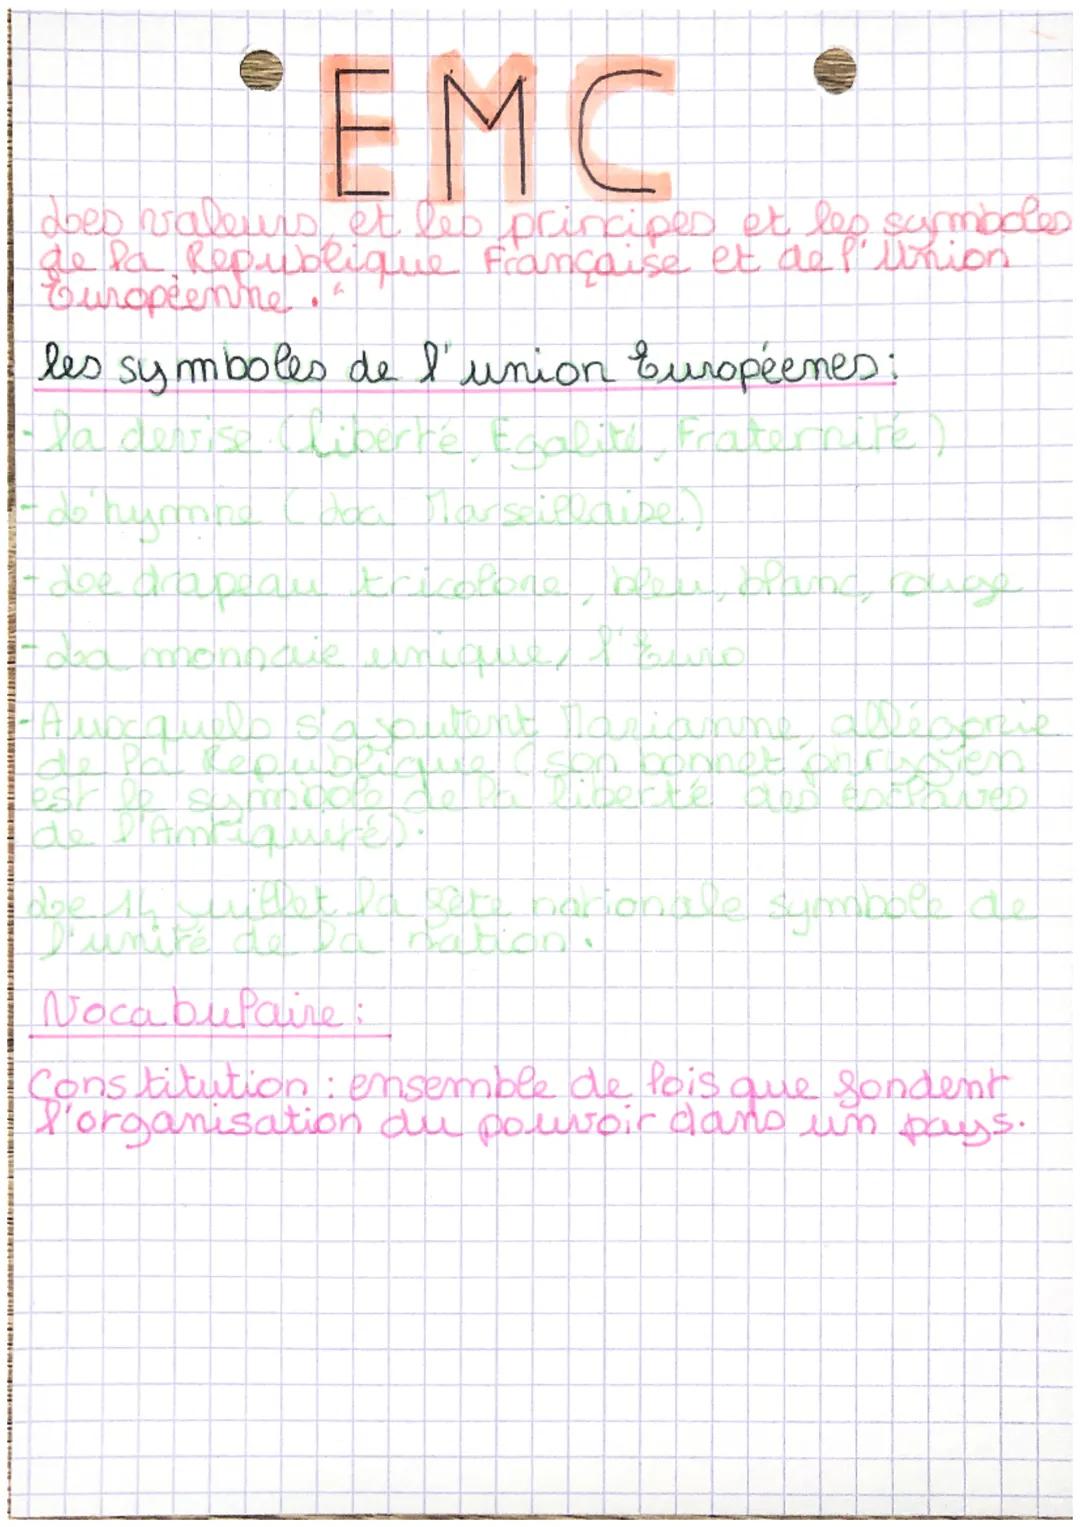 EMC
Les valeurs, et les principes et les symboles
de la République Française et de l'Union
Européenne.
les symboles de l'union Européenes:
- la devise (Liberté, Egalité, Fraternité)
- L'hymne (La Marseillaise)
- Le drapeau tricolore, bleu, blanc, rouge
- La monnaie unique, l'Euro
- Auxquels s'ajoutent Marianne, allégorie
de la République (son bonnet phrygien
est le symbole de la liberté des esclaves
de l'Antiquité).
Le 14 juillet la fête nationale symbole de
l'unité de la nation.
Vocabulaire:
Constitution : ensemble de lois que fondent
l'organisation du pouvoir dans un pays.